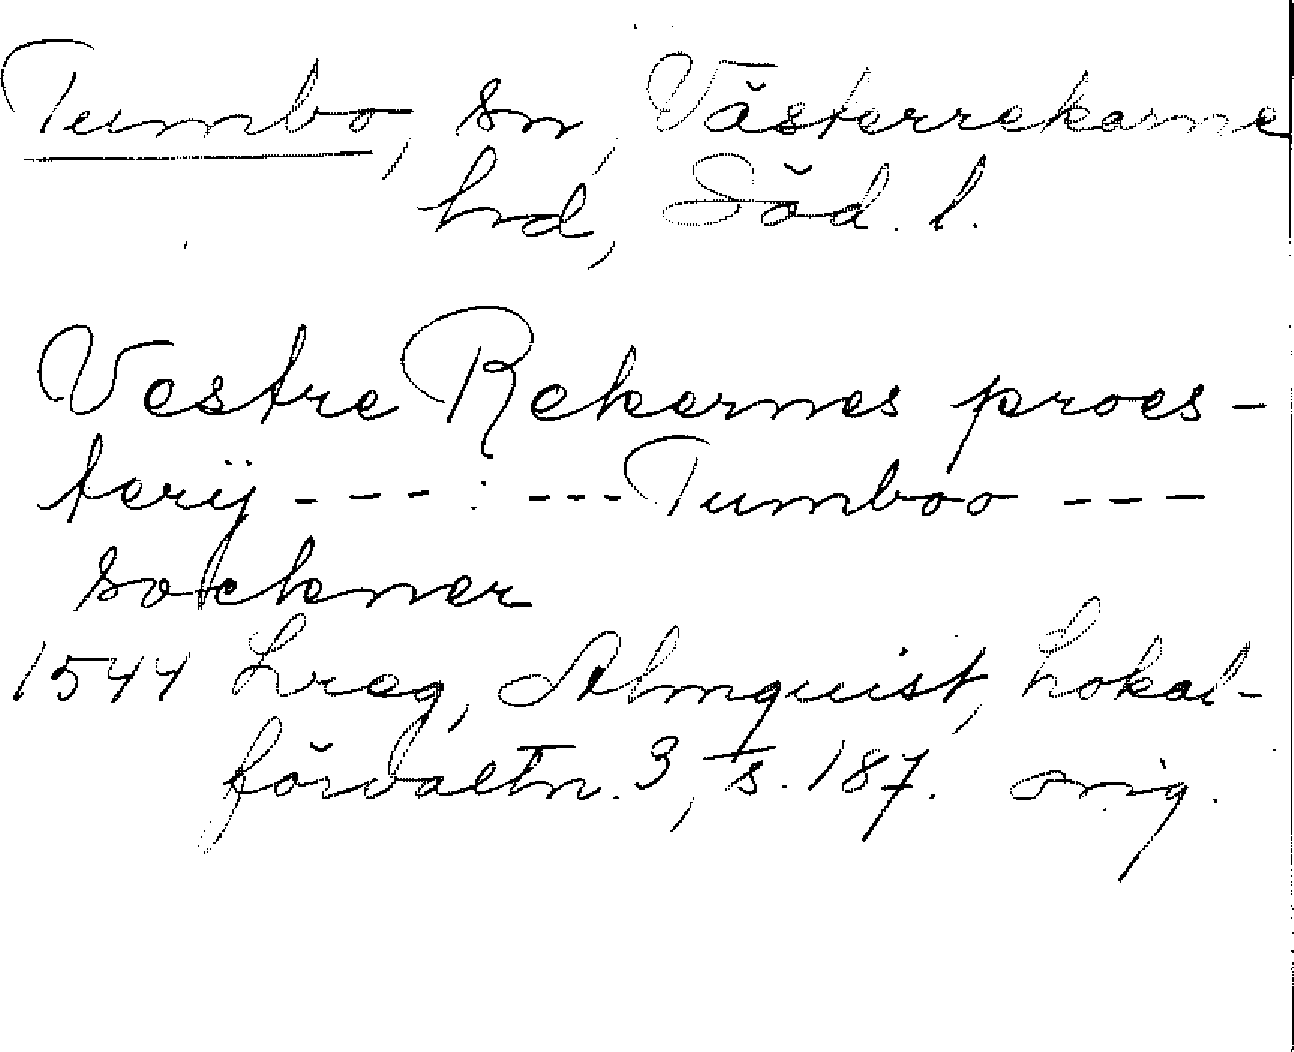 Tumbo, sn, Västerrekarne
hd, Söd. l.
Vestre Rekernes proes-
terÿ - - - : - - - Tumboo - - -
sockner
1544 Lreg, Almquist, Lokal-
förvaltn. 3, s. 187. orig.